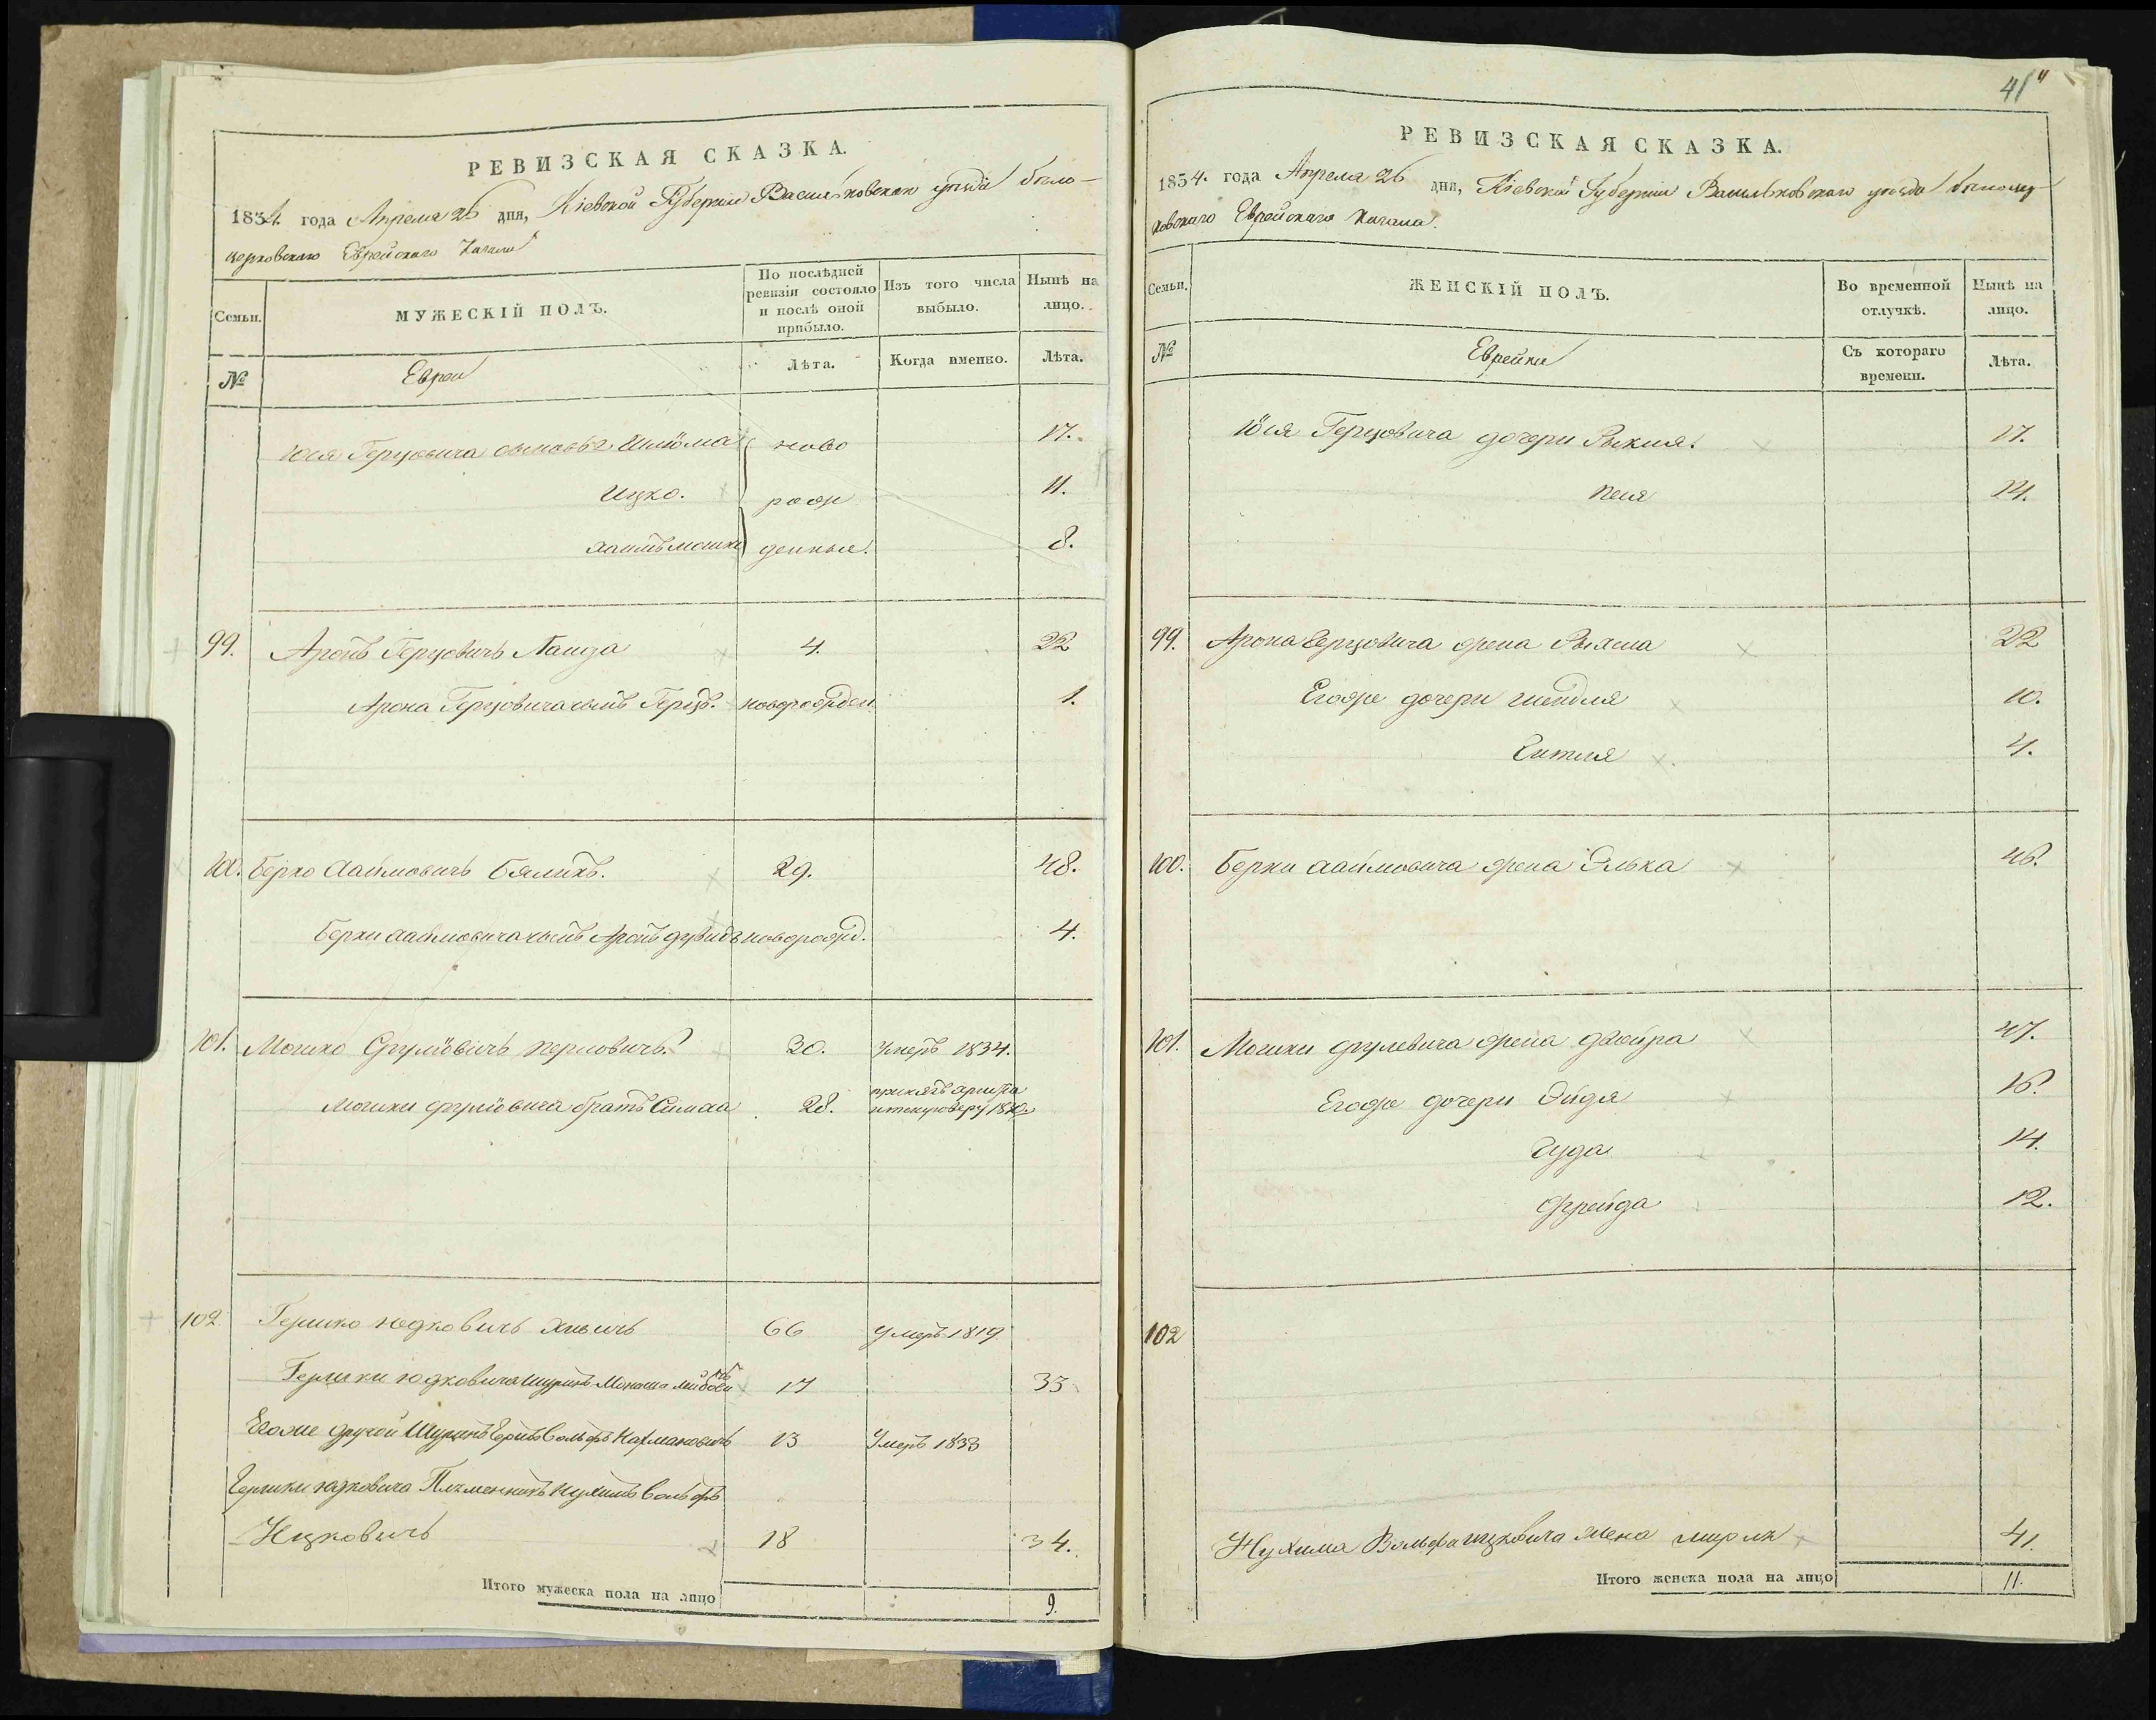 РЕВИЗСКАЯ СКАЗКА.
1834. года Апреля 26 дня, Кіевской Губерніи Васильковскаго уезда бѣло-
церковскаго Еврейскаго Кагала
Семьи.
МУЖЕСКІЙ ПОЛЪ.
По послѣдней
ревизіи состояло
и послѣ оной
прибыло.
Изъ того числа
выбыло.
Нынѣ на
лицо.
№
Евреи
Лѣта.
Когда именно.
Лѣта.
Юся Герцовича сыновья Шлюома ново 17.
Ицко. рож 11.
Хаимъ мошко денные. 8.
99. Аронъ Герцовичъ Ланда 4. 22
Арона Герцовича сынъ Герцъ. новорожден. 1.
100. Берко Хаимовичъ Бяликъ. 29. 48.
Берки Хаимовича сынъ Аронъ дувидъ новорожд. 4.
101. Мошко Срулiовичъ перловичъ. 30. Умеръ 1834.
Мошки срулiовича братъ Симха 28. 18
102. Гершко юдковичъ 66 умеръ 1819
Гершки юдковича шуринъ 17 33
Егоже другой Шуринъ Вольфъ Нахмановичъ 13 Умеръ 1833
Гершки юдковича Племенникъ Нухимъ Вольфъ
Ицковичъ 18 34.
Итого мужеска пола на лицо 9.
41
РЕВИЗСКАЯ СКАЗКА.
1834. года Апреля 26 дня, Кіевской Губерніи Васильковскаго уезда белоцер
ковскаго Еврейскаго Кагала.
Семьи.
ЖЕНСКІЙ ПОЛЪ.
Во временной
отлучкѣ.
Нынѣ на
лицо.
№
Еврейки
Съ котораго
времени.
Лѣта.
Юся Герцовича дочери Рыкля. 17.
Песя 14.
99. Арона Герцовича жена 22
Егоже дочери шендля 10.
Гитля 4.
100. Берки Хаимовича жена Элька 46.
101. Мошки срулевича жена двойра 47.
Егоже дочери Эйдя 16.
Гуда 14.
Фрейда 12.
102
Нухима Вольфа ицковича жена мирля 41.
Итого женска пола на лицо 11.